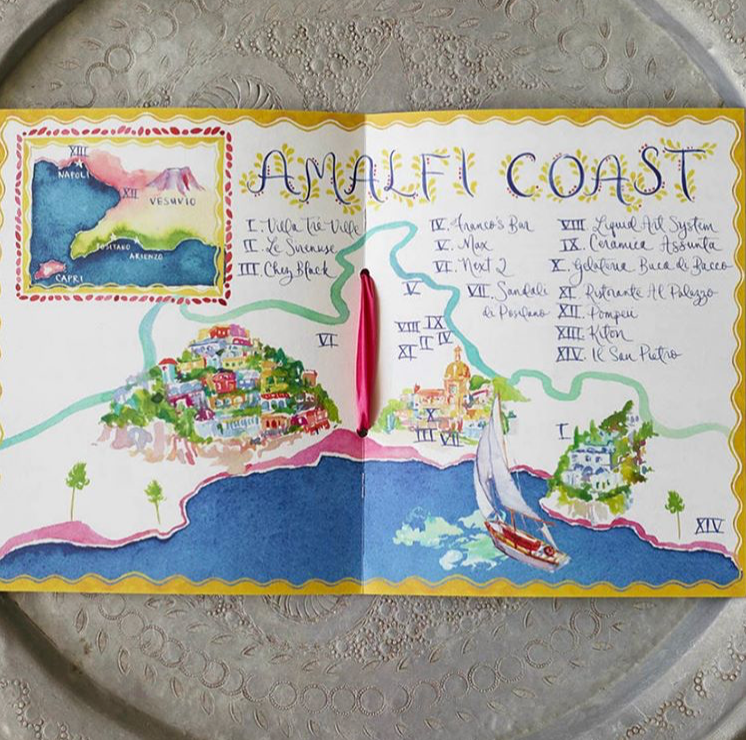 AMALFI COAST
XIII
NAPOLI
XII
VESUVIO
POSITANO
ARIENZO
CAPRI
I. Villa Tre Ville
II. Le Sirenuse
III Chez Black
IV. Franco's Bar
V. Max
VI. Next 2
VII. Sandali
di Positano
VIII Liquid Art System
IX. Ceramica Assunta
X. Gelateria Buca di Bacco
XI. Ristorante Al Palazzo
XII. Pompeii
XIII. Kiton
XIV. Il San Pietro
V
VI
VIII IX
II IV
XI
X
III VII
I
XIV